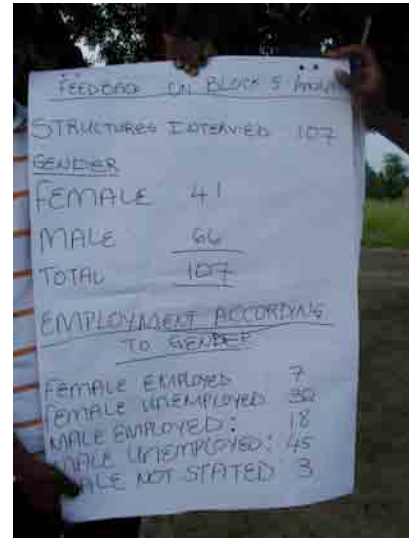 FEEDBACK ON BLOCK 5
STRUCTURES INTERVIED 107
GENDER
FEMALE 41
MALE 66
TOTAL 107
EMPLOYMENT ACCORDING
TO GENDER
FEMALE EMPLOYED 7
FEMALE UNEMPLOYED
MALE EMPLOYED: 18
MALE UNEMPLOYED: 45
MALE NOT STATED 3